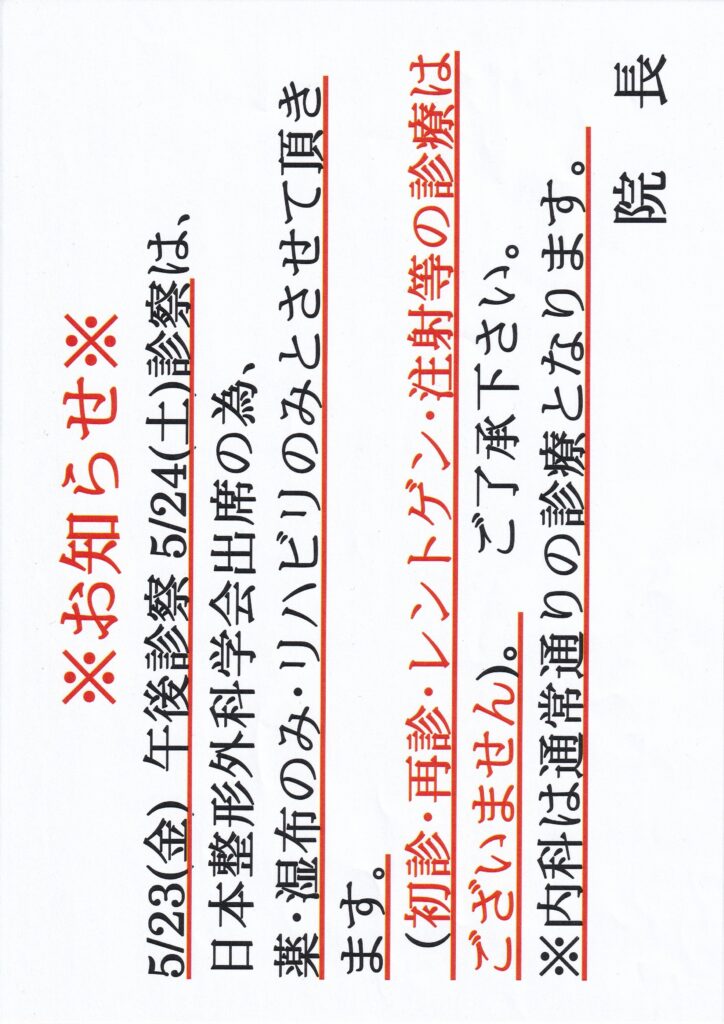 ※お知らせ※
5/23(金) 午後診察 5/24(土)診察は、
日本整形外科学会出席の為、
薬・湿布のみ・リハビリのみとさせて頂き
ます。
（初診・再診・レントゲン・注射等の診療は
ございません）。　ご了承下さい。
※内科は通常通りの診療となります。
院　長